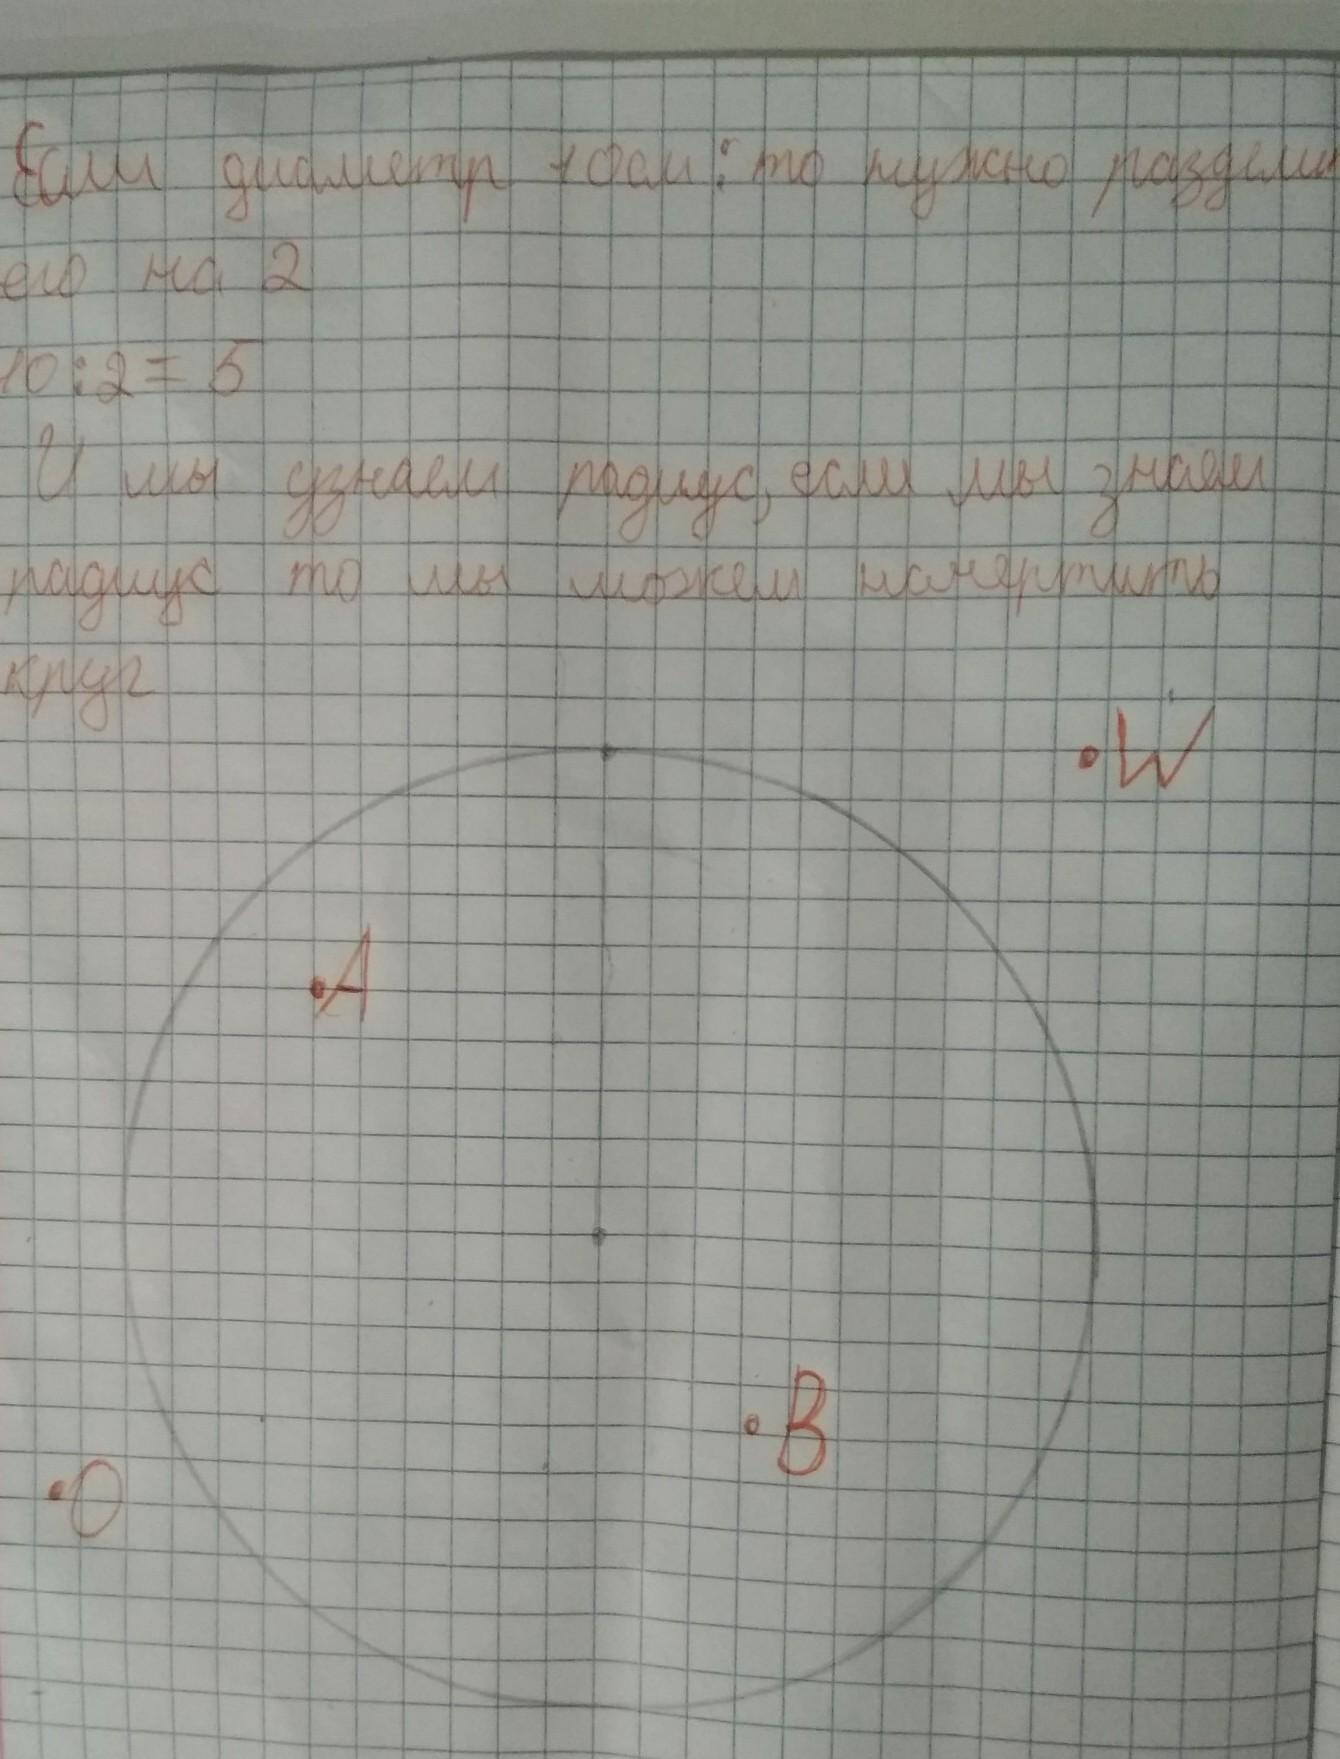 Если диаметр 10см: то нужно раздели
его на 2
10:2=5
И мы узнаем радиус, если мы знаем
радиус то мы можем начертить
круг
W
A
B
O